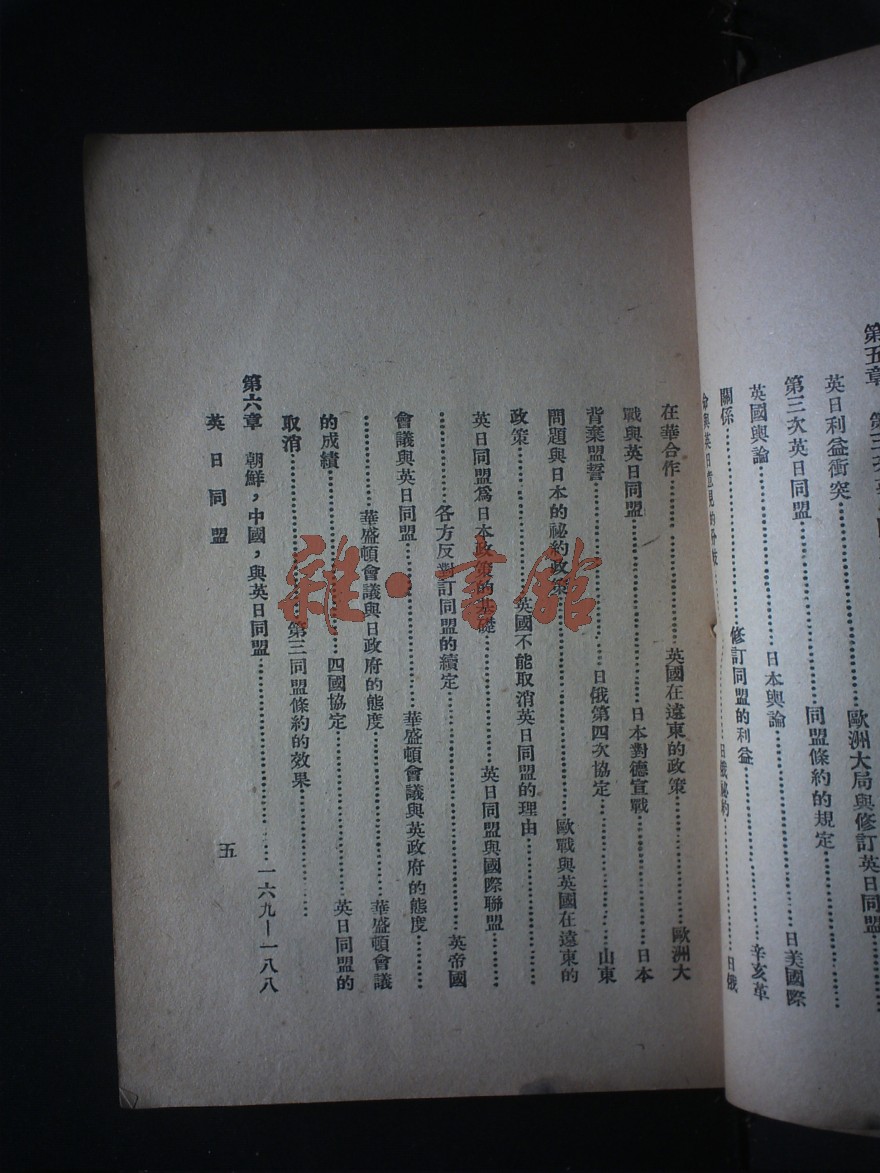 第五章
英日利益衝突……歐洲大局與修訂英日同盟……
第三次英日同盟……同盟條約的規定……
英國輿論……日本輿論……日美國際
關係……修訂同盟的利益……辛亥革
命與英日意見的分歧……日俄秘約……日俄
在華合作……英國在遠東的政策……歐洲大
戰與英日同盟……日本對德宣戰……日本
背棄盟誓……日俄第四次協定……山東
問題與日本的祕約政策……歐戰與英國在遠東的
政策……英國不能取消英日同盟的理由……
英日同盟爲日本政策的基礎……英日同盟與國際聯盟……
……各方反對訂同盟的續定……英帝國
會議與英日同盟……華盛頓會議與英政府的態度……
……華盛頓會議與日政府的態度……華盛頓會議
的成績……四國協定……英日同盟的
取消……第三同盟條約的效果……
第六章 朝鮮，中國，與英日同盟……一六九—一八八
英日同盟 五
雜·書館